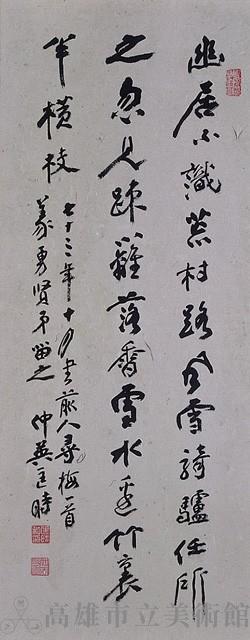 幽居不識荒村路風雪騎驢任所
之忽見踈籬落香雪水邊竹裏
半橫枝
七十三年十月書前人尋梅一首
義勇賢弟留之 仲英匡時
高雄市立美術館